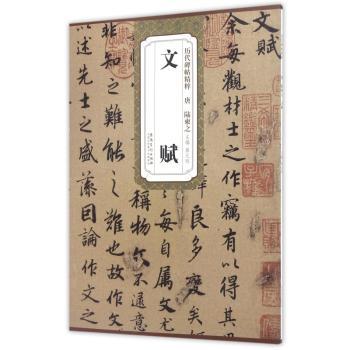 历代碑帖精粹 唐 陸柬之
文賦
安徽美术出版社
文賦
余每觀材士之作竊有以得其
良多變矣
每自屬文尤
稱物文不逮意
之難能之難也故作文
以述先士之盛藻因論作文之